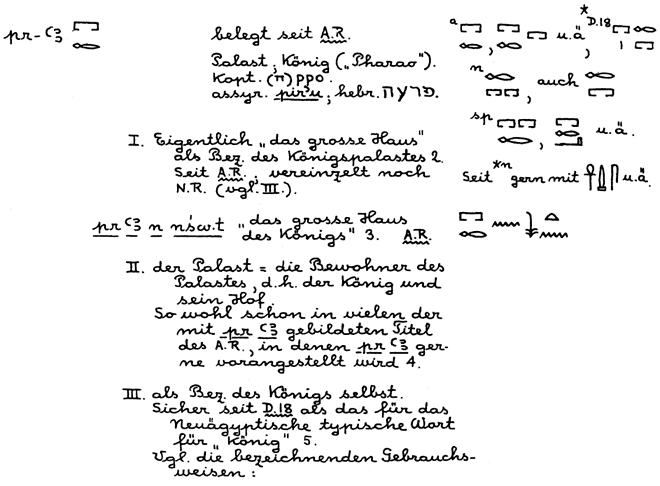 pr-ꜥꜣ 𓉐𓉻
belegt seit A.R.
Palast; König („Pharao“).
Kopt. (π)ρρο.
assyr. pir'u; hebr. פרעה.
I. Eigentlich „das grosse Haus“
als Bez. des Königspalastes 2.
Seit A.R.; vereinzelt noch
N.R. (vgl. III.).
pr ꜥꜣ n nśw.t „das grosse Haus
des Königs“ 3. A.R.
II. der Palast = die Bewohner des
Palastes, d.h. der König und
sein Hof.
So wohl schon in vielen der
mit pr ꜥꜣ gebildeten Titel
des A.R., in denen pr ꜥꜣ ger-
ne vorangestellt wird 4.
III. als Bez. des Königs selbst.
Sicher seit D.18 als das für das
Neuägyptische typische Wort
für „König“ 5.
Vgl. die bezeichnenden Gebrauchs-
weisen:
a u.ä., * D.18
n auch
sp u.ä.
Seit *n gern mit 𓋹𓍑𓋴 u.ä.